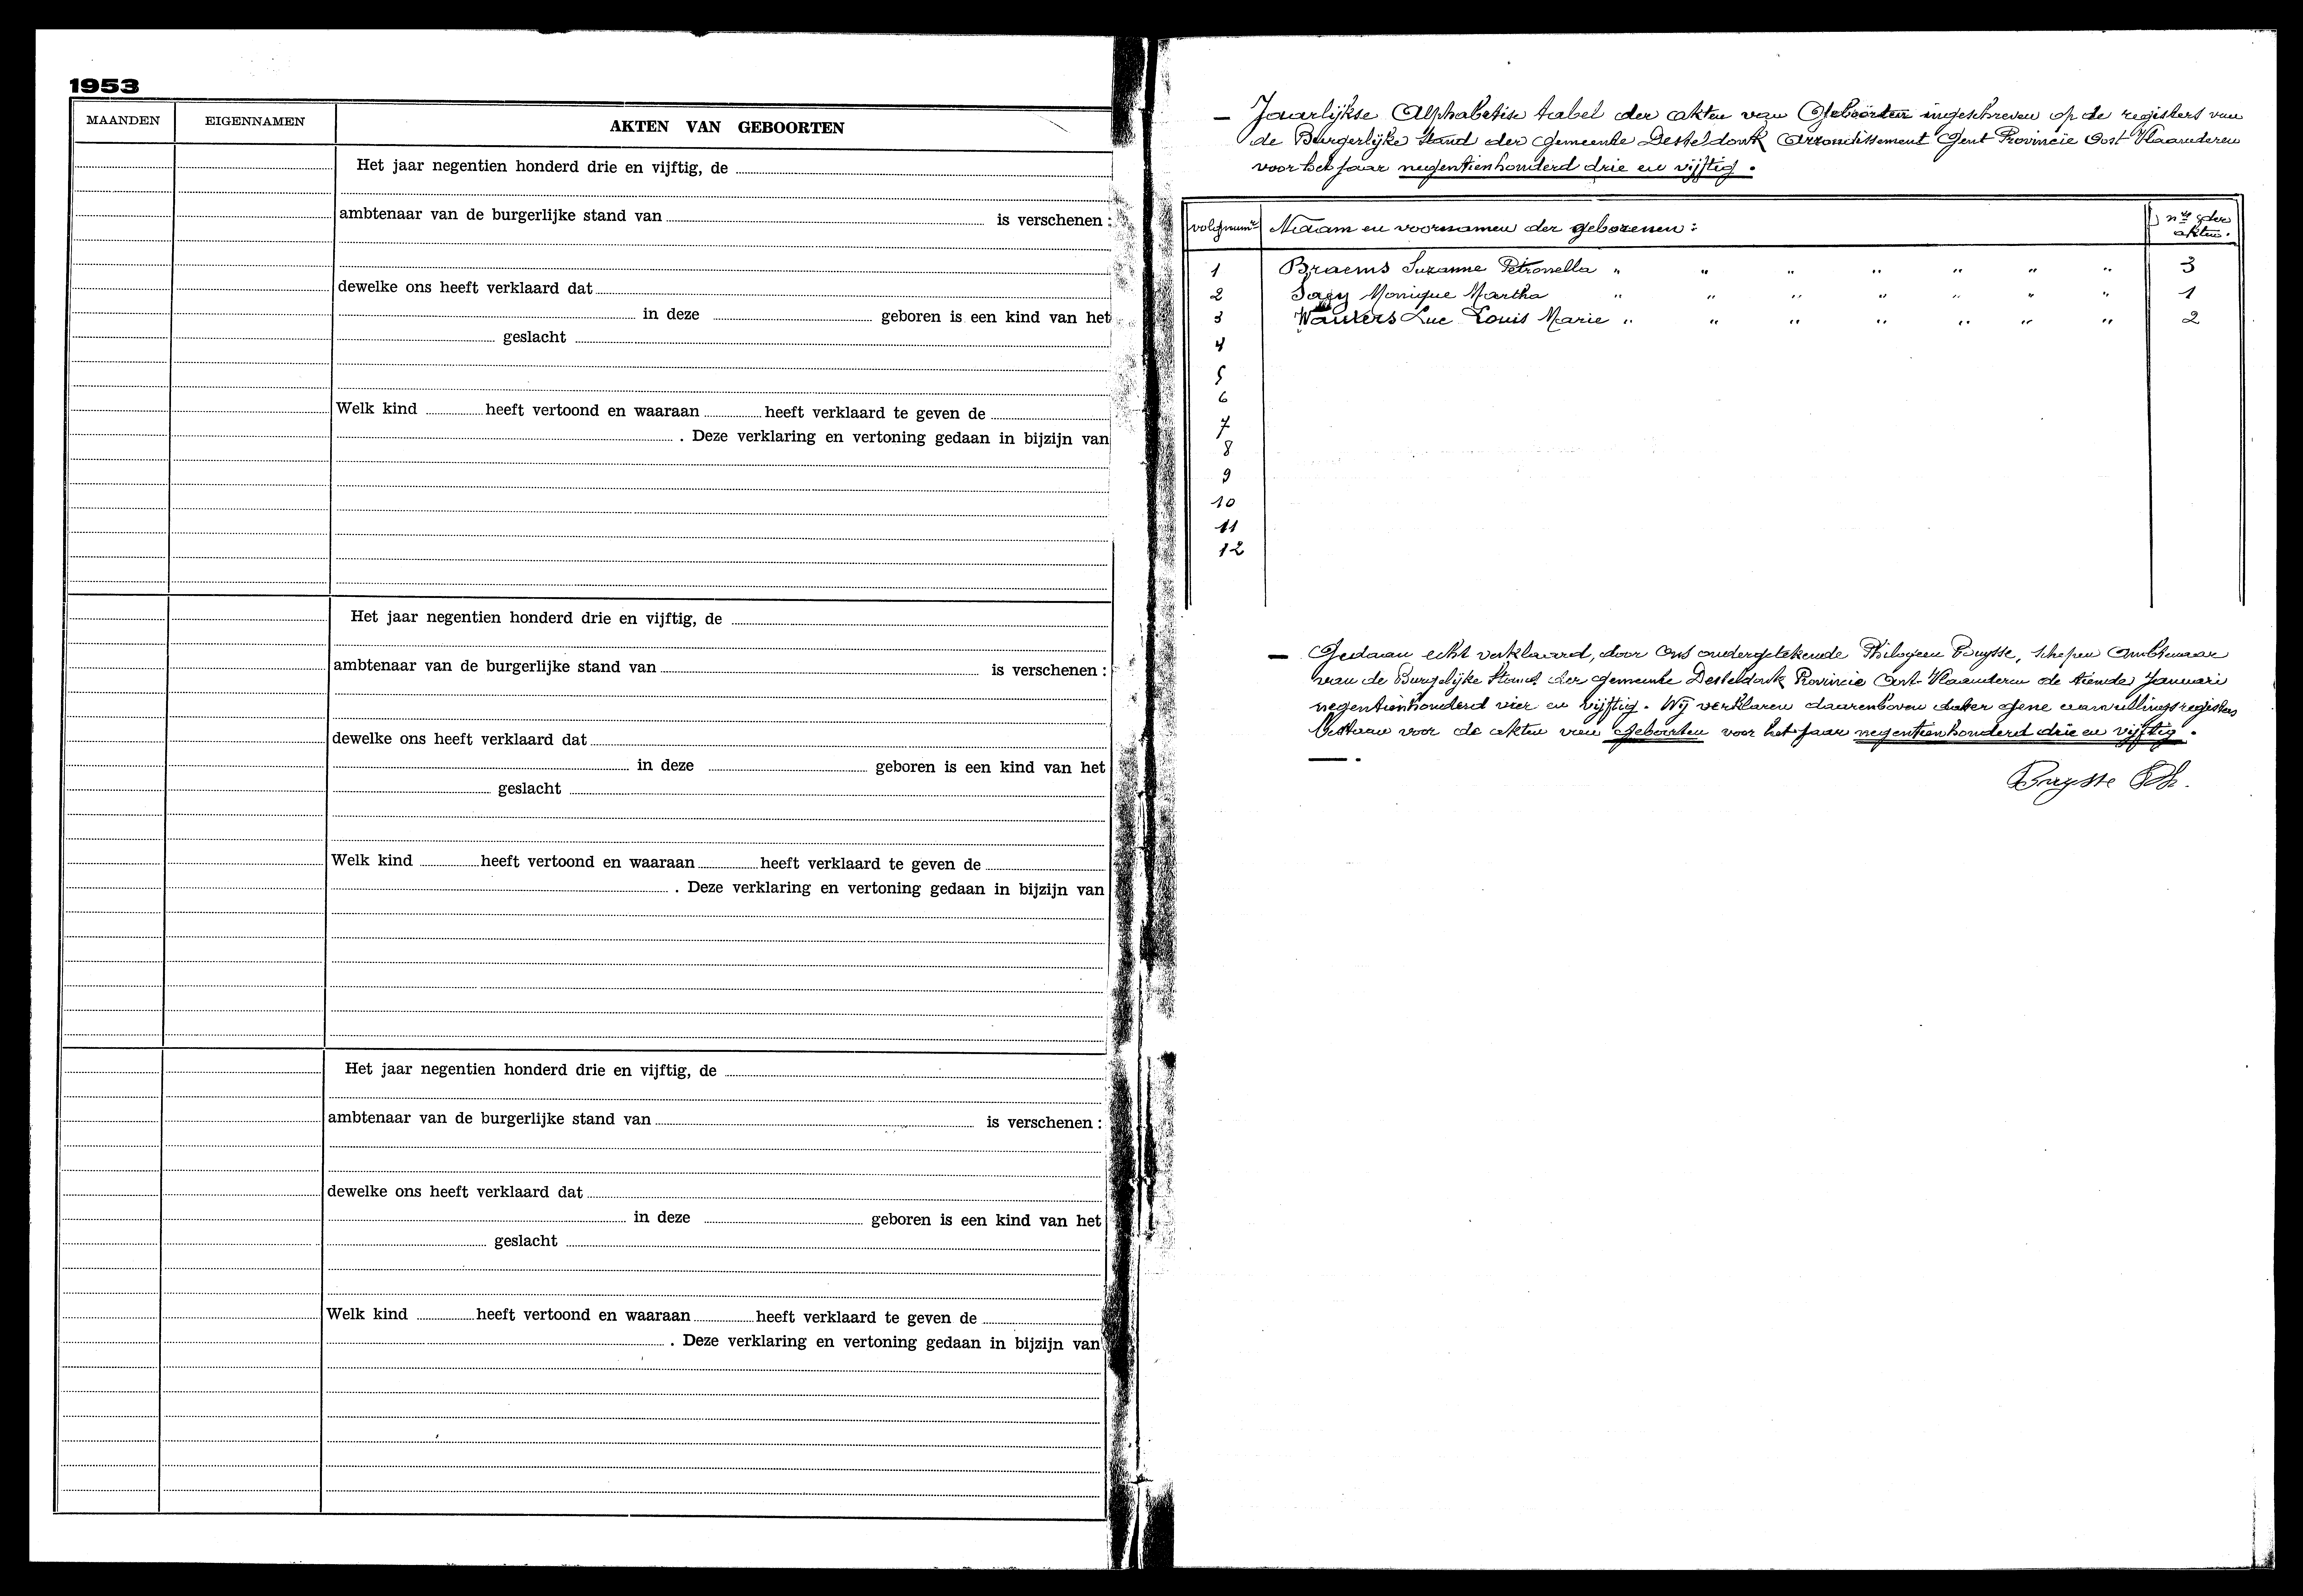 1953
MAANDEN EIGENNAMEN AKTEN VAN GEBOORTEN
Het jaar negentien honderd drie en vijftig, de
ambtenaar van de burgerlijke stand van is verschenen :
dewelke ons heeft verklaard dat
in deze geboren is een kind van het
geslacht
Welk kind heeft vertoond en waaraan heeft verklaard te geven de
. Deze verklaring en vertoning gedaan in bijzijn van
Het jaar negentien honderd drie en vijftig, de
ambtenaar van de burgerlijke stand van is verschenen :
dewelke ons heeft verklaard dat
in deze geboren is een kind van het
geslacht
Welk kind heeft vertoond en waaraan heeft verklaard te geven de
. Deze verklaring en vertoning gedaan in bijzijn van
Het jaar negentien honderd drie en vijftig, de
ambtenaar van de burgerlijke stand van is verschenen :
dewelke ons heeft verklaard dat
in deze geboren is een kind van het
geslacht
Welk kind heeft vertoond en waaraan heeft verklaard te geven de
. Deze verklaring en vertoning gedaan in bijzijn van
— Jaarlijkse Alphabetise tabel der akten van Geboorten ingeschreven op de registers van
de Burgerlijke Stand der Gemeente Desteldonk Arrondissement Gent Provincie Oost Vlaanderen
voor het jaar negentienhonderd drie en vijftig.
volgnumr Naam en voornamen der geborenen : nrs der
akten.
1 Braems Suzanne Petronella " " " " " " " 3
2 Sagy Monique Martha " " " " " " " 1
3 Wauters Luc Louis Marie " " " " " " " 2
4
5
6
7
8
9
10
11
12
— Gedaan echt verklaard, door Ons ondergetekende Philogeen Buysse, Schepen Ambtenaar
van de Burgelijke Stand der Gemeente Desteldonk Provincie Oost-Vlaanderen de tiende Januari
negentienhonderd vier en vijftig. Wij verklaren daarenboven dat er gene aanvullingsregisters
bestaan voor de akten van geboorten voor het jaar negentienhonderd drie en vijftig.
— .
Buysse Ph.